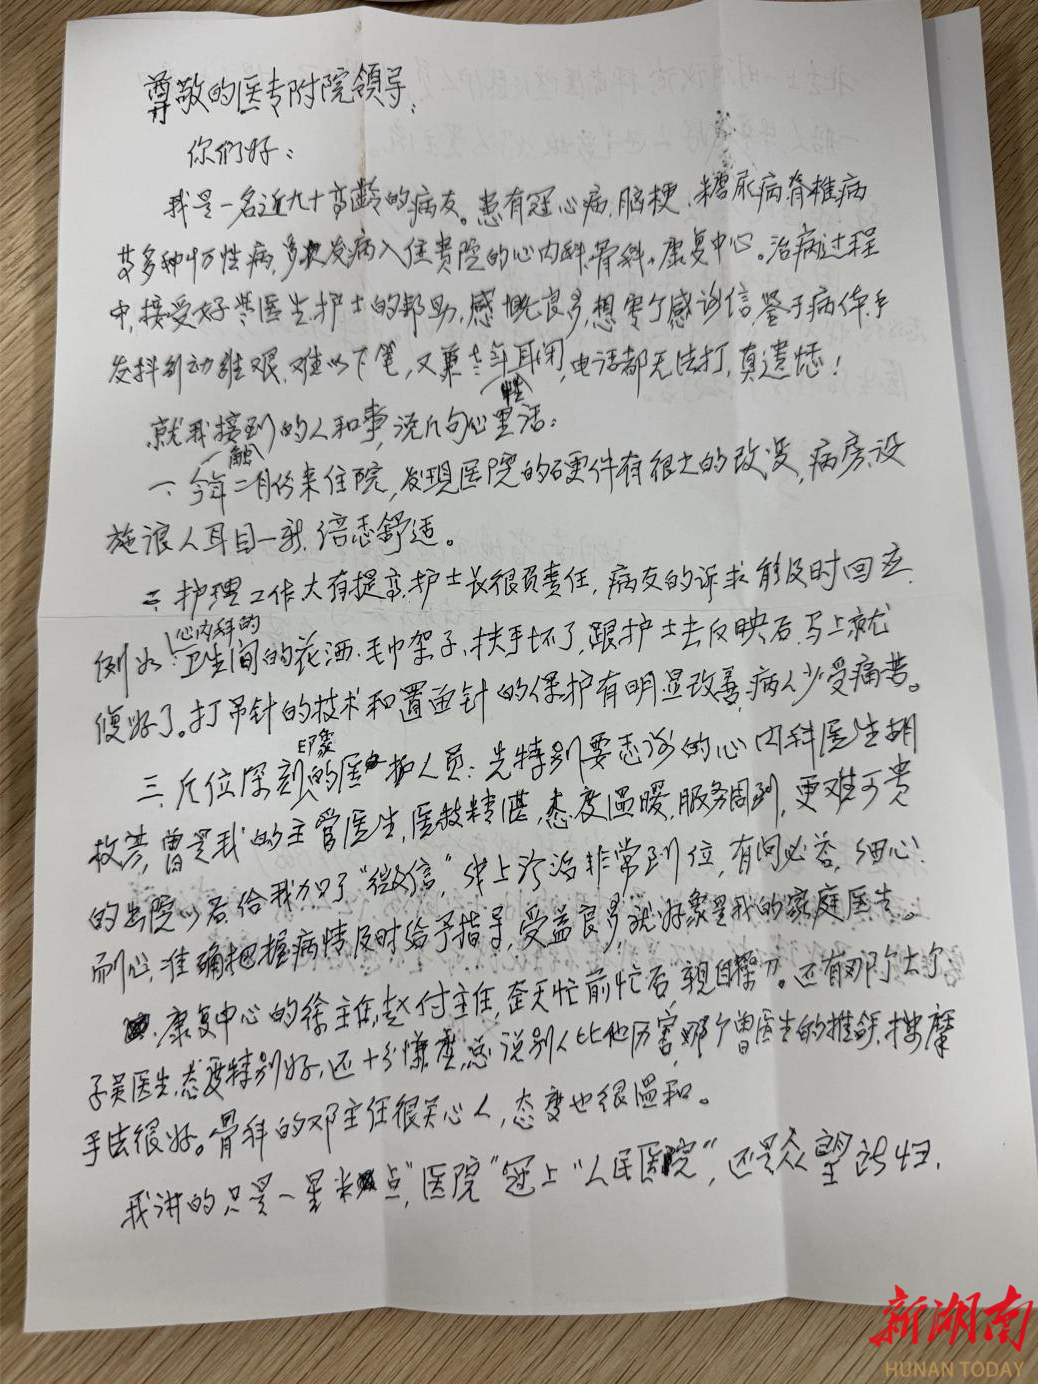 尊敬的医专附院领导：
你们好：
我是一名近九十高龄的病友。患有冠心病、脑梗、糖尿病、脊椎病
等多种慢性病，多次发病入住贵院的心内科、骨科、康复中心。治病过程
中，接受好些医生护士的帮助，感慨良多，想写个感谢信，鉴于病体，手
发抖，行动维艰，难以下笔，又兼老年性耳闭，电话都无法打，真遗憾！
就我接触到的人和事，说几句心里话：
一、今年二月份来住院，发现医院的硬件有很大的改变，病房设
施浪人耳目一新，倍感舒适。
二、护理工作大有提高，护士长很负责任，病友的诉求能及时回应，
例如：心内科的卫生间的花洒、毛巾架子、扶手坏了，跟护士去反映后，马上就
修好了。打吊针的技术和置留针的保护有明显改善，病人少受痛苦。
三、几位印象深刻的医护人员：先特别要感谢的心内科医生胡
敉芳，曾是我的主管医生，医技精湛，态度温暖，服务周到，更难可贵
的出院以后给我加了“微信”，线上诊治非常到位，有问必答，细心、
耐心，准确把握病情及时给予指导，受益良多，就好象是我的家庭医生。
康复中心的徐主任，赵付主任，奎天忙前忙后，亲自操刀。还有那个大个
子吴医生，态度特别好，还十分慊虚，总说别人比他厉害，那个曾医生的推拿，按摩
手法很好。骨科的邓主任很关心人，态度也很温和。
我讲的只是一星半点，“医院”冠上“人民医院”，还是众望所归，
新湖南
HUNAN TODAY